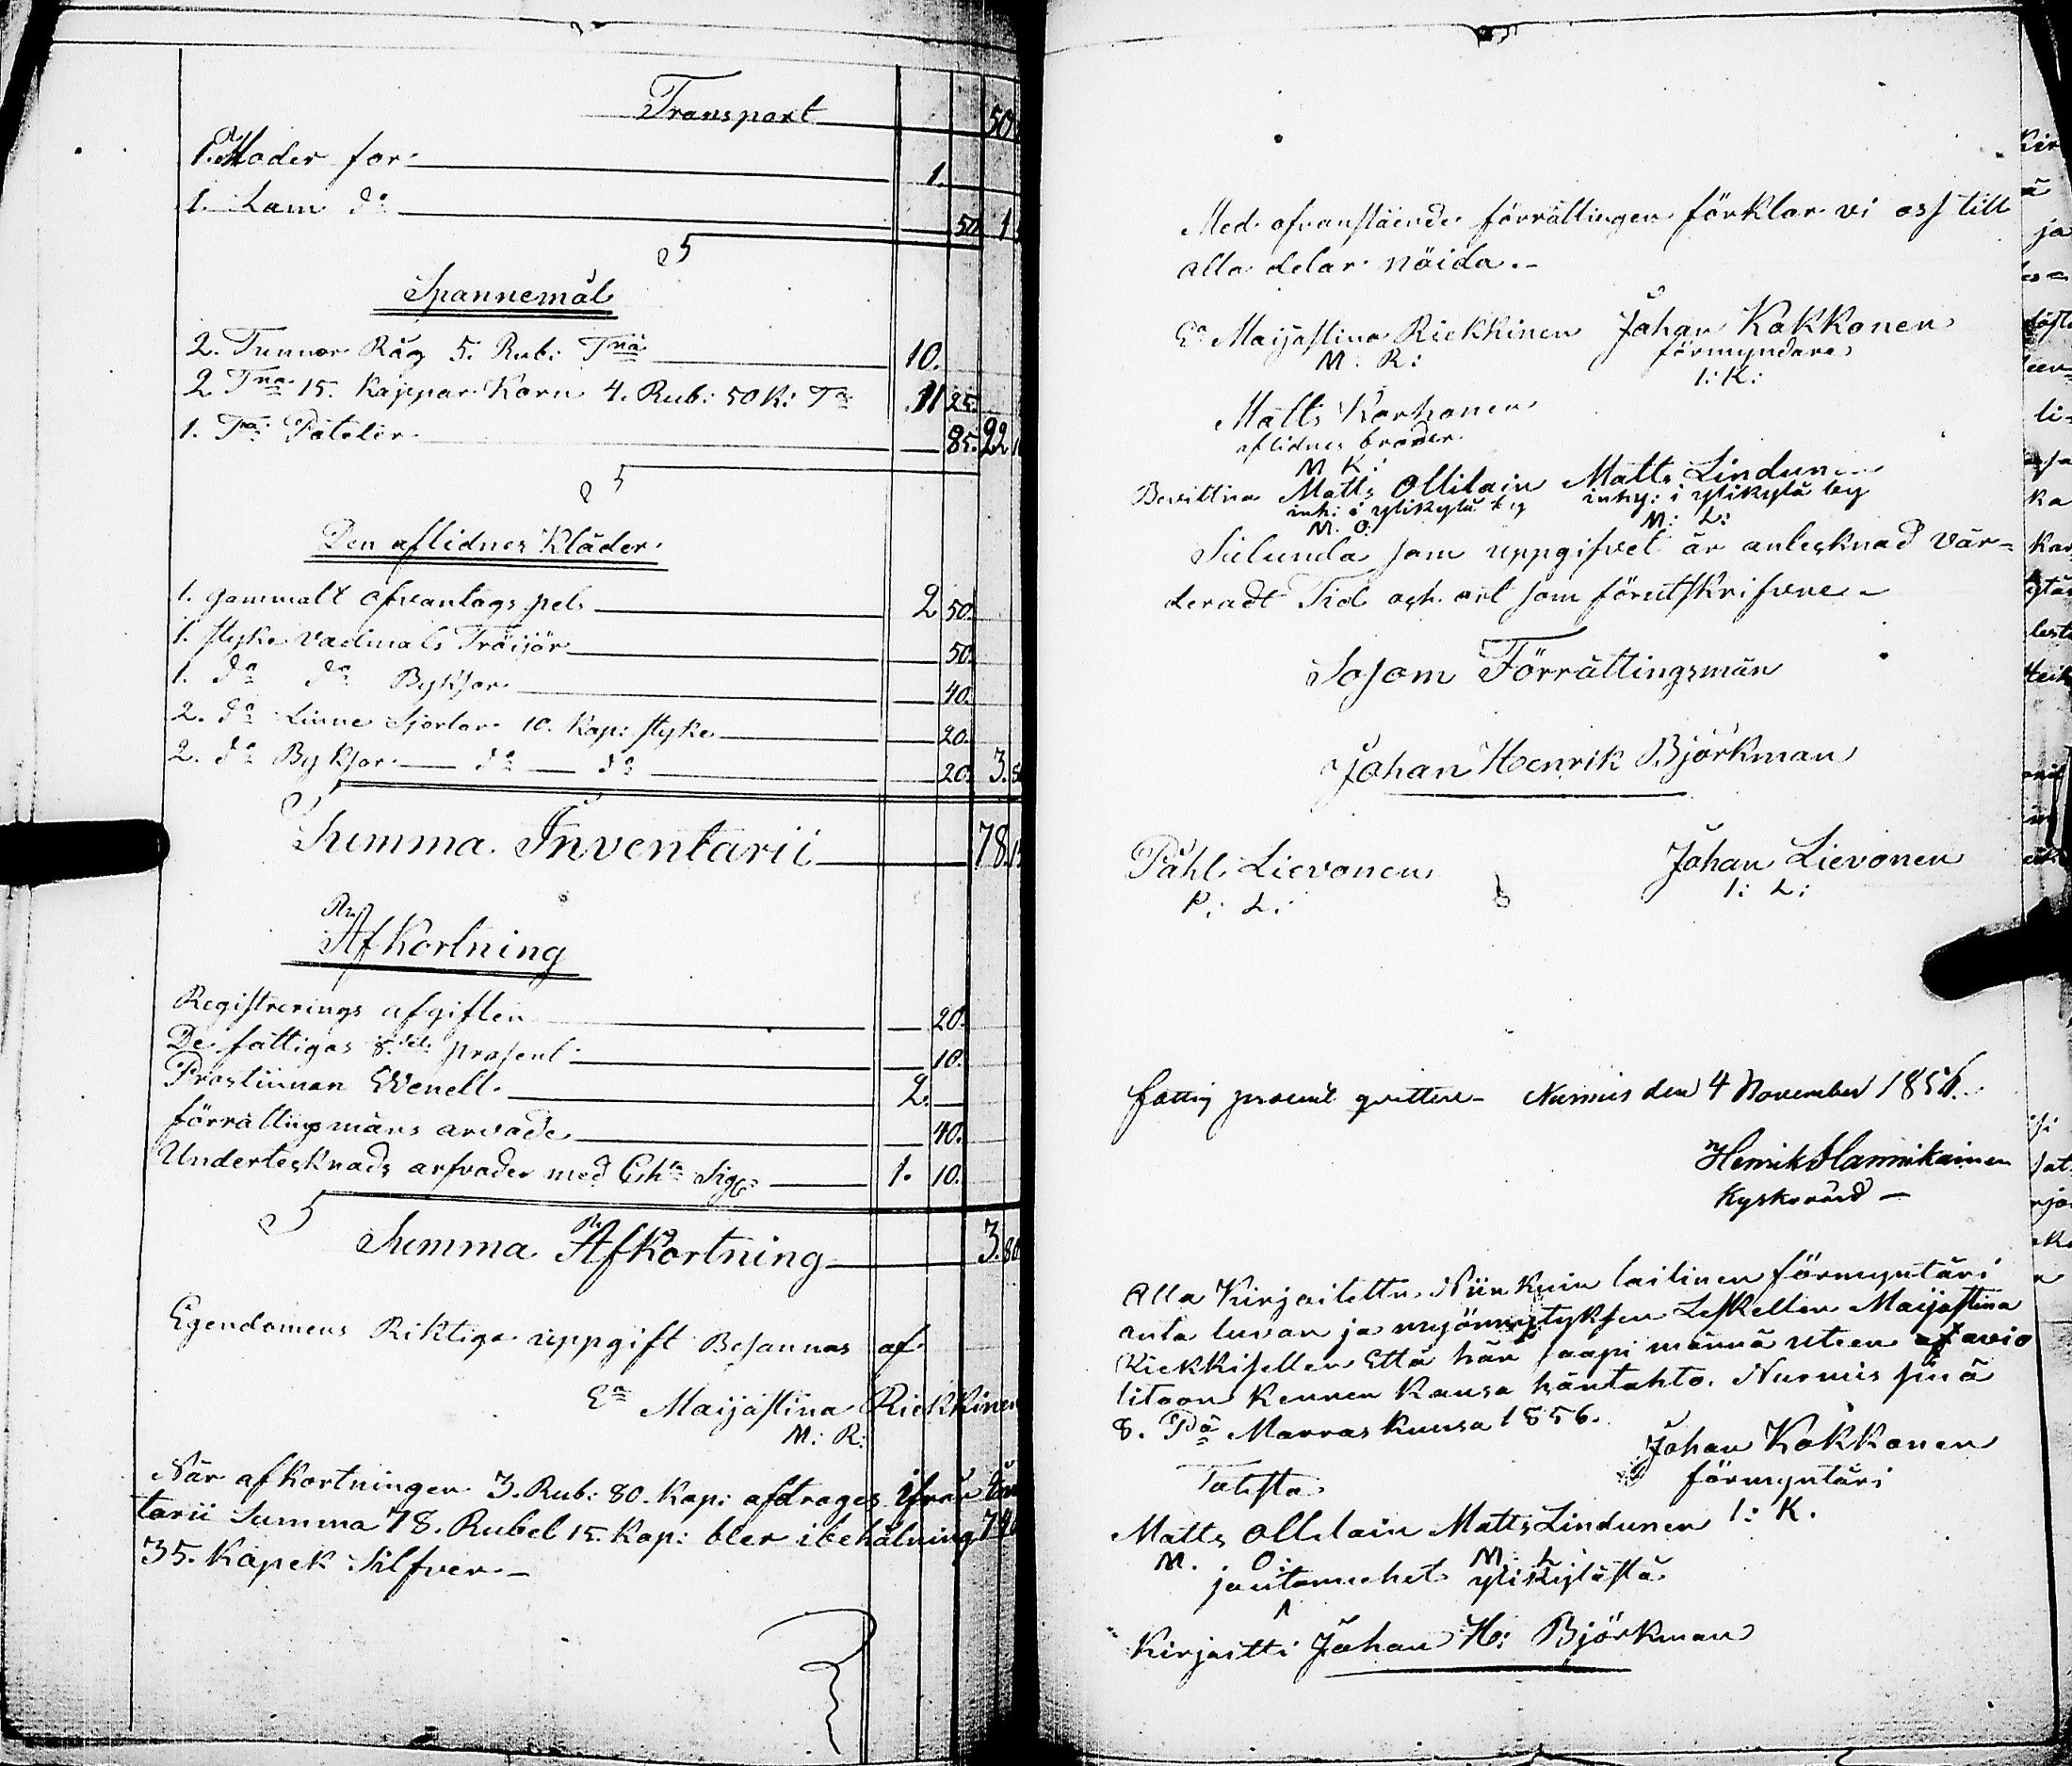 Transport 50
1. Moder for 1.
1. Lam do 50 1
Spannemål
2. Tunnor Råg 5. Rub: Tna 10.
2 Tna 15. Kappar Korn 4. Rub: 50 K: Ta 11 25.
1. Tna Potäter 85. 22
Den aflidnes Kläder
1. gammalt ofvantags pels 2 50.
1. styke Vadmals Tröijor 50.
1. do do Byksor 40.
2. do Linne Sjortor 10. Kop: styke 20.
2. do Byksor do do 20. 3.
Summa Inventarii 78.
Afkortning
Registrerings afgiften 20.
De fattigas prosent 10.
Prostinnan Wenell 2.
förrättingsmäns arvade 40.
Undertesknads arfvoder med 1. 10.
Summa Afkortning 3. 80
Egendomens Riktiga uppgift Besannas af
Ea Maijastina Riekkinen
M: R:
När afkortningen 3. Rub: 80. Kop: afdrages ifrån
tarii Summa 78. Rubel 15. Kop: bler ibehålning 74
35. Kopek Silfver.
Med ofvanstående förrättingen förklar vi oss till
alla delar nöida.
Ea Maijastina Riekkinen Johan Kokkonen
M. R: förmyndare
I: K:
Matts Korhonen
aflidnes broder
M K:
Bevittna Matts Ollilain Matts Lindunen
inh: i ylikylä by inhy: i ylikylä by
M. O. M: L:
Sålunda som uppgifvet är antesknad vär-
deradt Tid och ort som förutskrifvne
Sosom Förrättingsmän
Johan Henrik Björkman
Påhl Lievonen Johan Lievonen
P: L: I: L:
fattig procent qvitteres Nurmis den 4 November 1856.
Henrik Hannikainen
Kyrkovärd
Alla Kirjoitettu Niinkuin lailinen förmyntäri
anta luvan ja myönnytyksen Leskellen Maijastina
Riekkisellen Että hän saapi männä uteen avio
litoon Kennen Kansa hän tahto. Nurmis sinä
8. Pä Marras kuusa 1856.
Johan Kokkonen
förmyntäri
I: K.
Totista
Matts Ollilain Matts Lindunen
M. O: M: L:
joutomiehet ylikylästä
Kirjoitti Johan H: Björkman